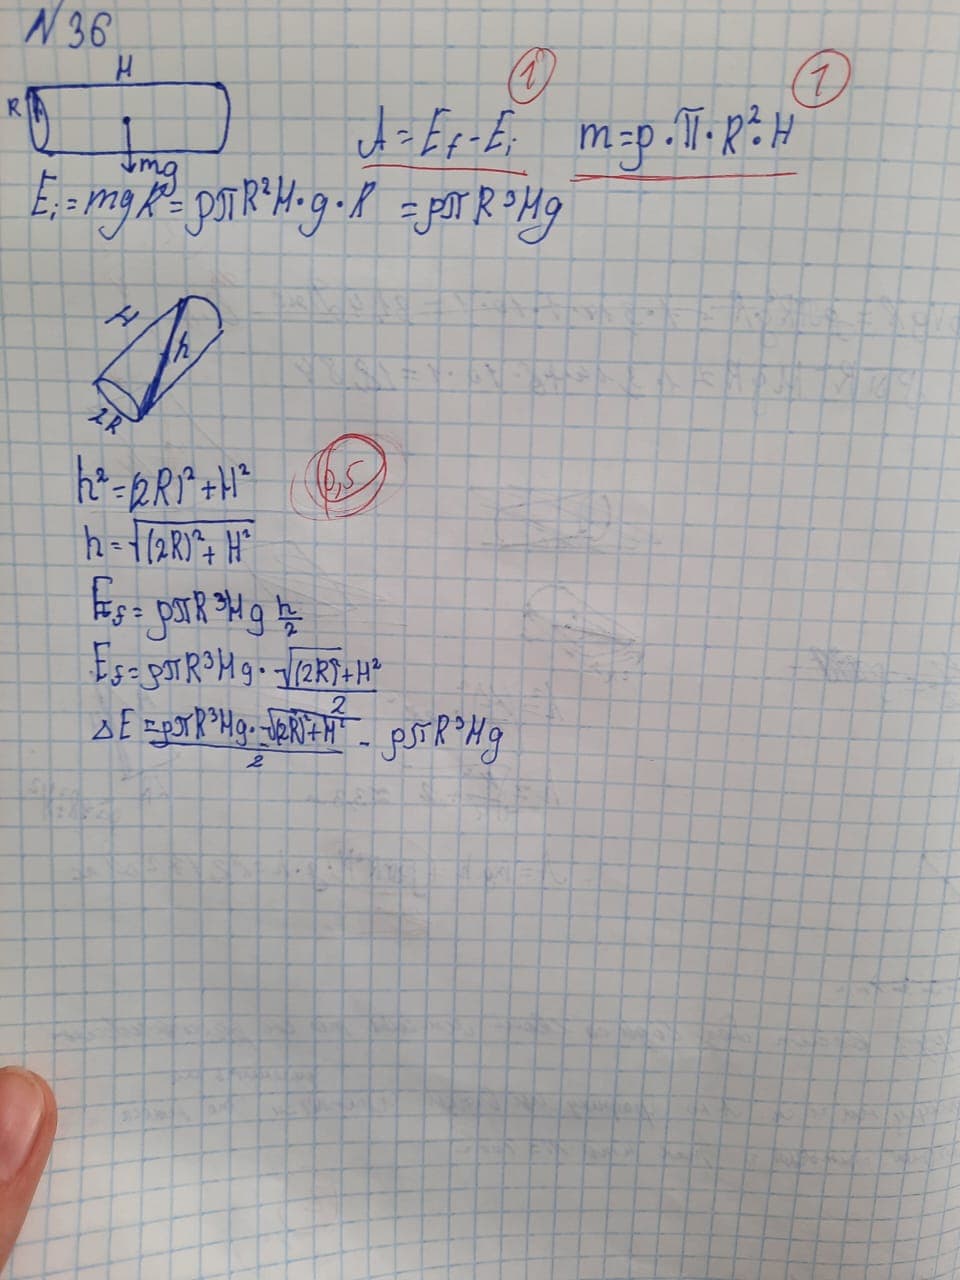 N36
H
R
mg
1
1
A = E_f - E_i
m=ρ·π·R²·H
E_i = mgR = ρπR²H·g·R = ρπR³Hg
H
h
2R
h² = (2R)² + H²
0,5
h = √((2R)² + H²)
E_f = ρπR³Hg h/2
E_f = ρπR³Hg · √((2R)² + H²)/2
ΔE = ρπR³Hg·√((2R)² + H²)/2 - ρπR³Hg